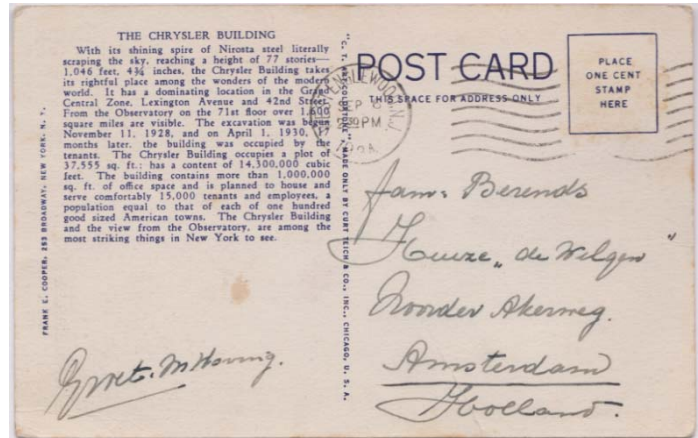 THE CHRYSLER BUILDING
With its shining spire of Nirosta steel literally
scraping the sky, reaching a height of 77 stories—
1,046 feet, 4¾ inches, the Chrysler Building takes
its rightful place among the wonders of the modern
world. It has a dominating location in the Grand
Central Zone, Lexington Avenue and 42nd Street.
From the Observatory on the 71st floor over 1,600
square miles are visible. The excavation was begun
November 11, 1928, and on April 1, 1930, 17
months later, the building was occupied by the
tenants. The Chrysler Building occupies a plot of
37,555 sq. ft.: has a content of 14,300,000 cubic
feet. The building contains more than 1,000,000
sq. ft. of office space and is planned to house and
serve comfortably 15,000 tenants and employees, a
population equal to that of each of one hundred
good sized American towns. The Chrysler Building
and the view from the Observatory, are among the
most striking things in New York to see.
FRANK E. COOPER, 283 BROADWAY, NEW YORK, N. Y.
Groets. M Hoving.
"C. T. ART-COLORTONE" MADE ONLY BY CURT TEICH & CO., INC., CHICAGO, U. S. A.
POST CARD
THIS SPACE FOR ADDRESS ONLY
ENGLEWOOD, N.J.
SEP
PM
PLACE
ONE CENT
STAMP
HERE
fam: Berends
Huize „de Wilgen"
Noorder Akerweg.
Amsterdam
Holland.